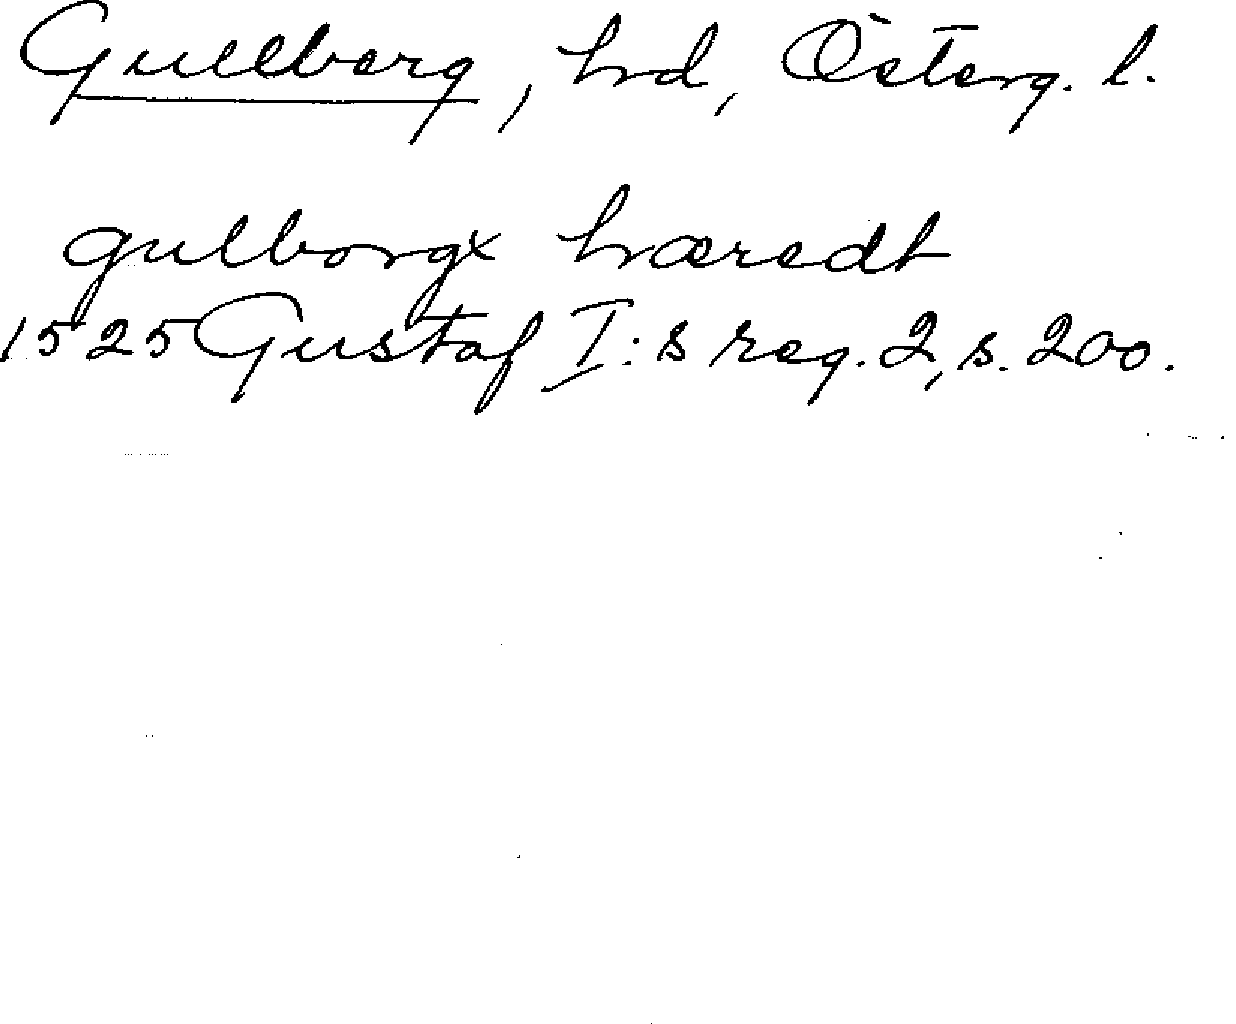 Gullberg, hd, Österg. l.
gulborgx hæredt
1525 Gustaf I:s reg. 2, s. 200.